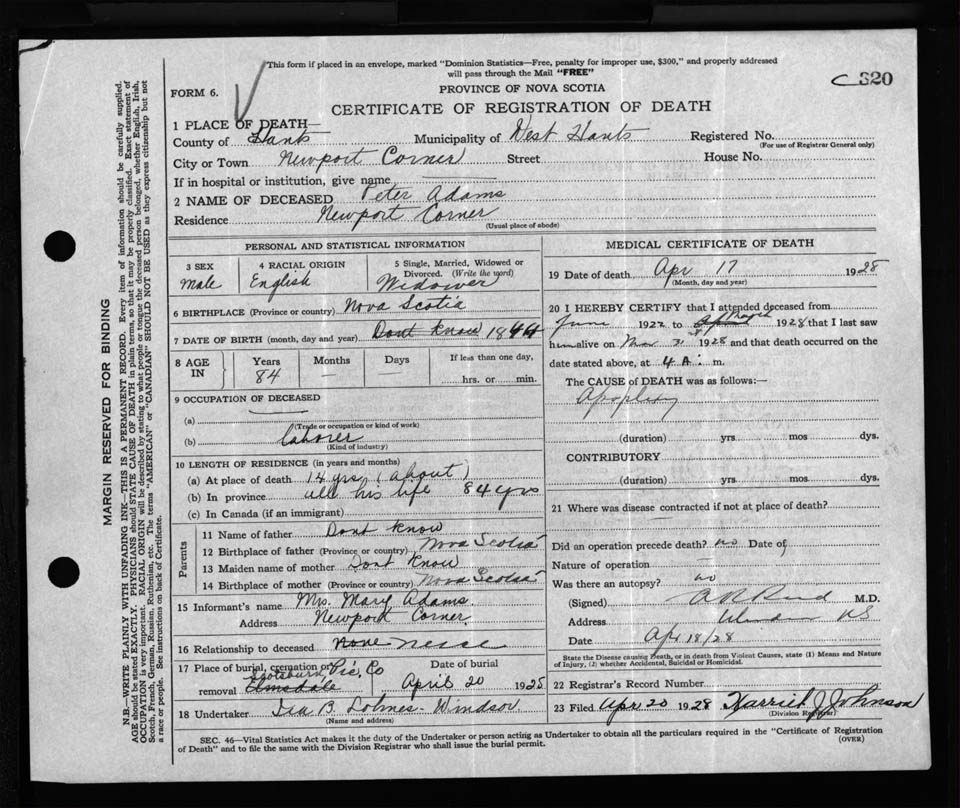 This form if placed in an envelope, marked "Dominion Statistics—Free, penalty for improper use, $300," and properly addressed
will pass through the Mail "FREE"
C 820
FORM 6.
PROVINCE OF NOVA SCOTIA
CERTIFICATE OF REGISTRATION OF DEATH
1 PLACE OF DEATH—
County of Hants Municipality of West Hants Registered No.
(For use of Registrar General only)
City or Town Newport Corner Street House No.
If in hospital or institution, give name
2 NAME OF DECEASED Peter Adams
Residence Newport Corner
(Usual place of abode)
PERSONAL AND STATISTICAL INFORMATION
3 SEX
Male
4 RACIAL ORIGIN
English
5 Single, Married, Widowed or
Divorced. (Write the word)
Widower
6 BIRTHPLACE (Province or country) Nova Scotia
7 DATE OF BIRTH (month, day and year) Dont Know 1844
8 AGE IN
Years
84
Months
—
Days
—
If less than one day,
hrs. or min.
9 OCCUPATION OF DECEASED
(a)
(Trade or occupation or kind of work)
(b) laborer
(Kind of industry)
10 LENGTH OF RESIDENCE (in years and months)
(a) At place of death 14 yrs (about)
(b) In province all his life 84 yrs
(c) In Canada (if an immigrant)
Parents
11 Name of father Dont Know
12 Birthplace of father (Province or country) Nova Scotia
13 Maiden name of mother Dont Know
14 Birthplace of mother (Province or country) Nova Scotia
15 Informant's name Mrs. Mary Adams.
Address Newport Corner.
16 Relationship to deceased None neice
17 Place of burial, cremation or
removal Scotsburn, Pic, Co
Elmsdale
Date of burial
April 20 1928
18 Undertaker B. Windsor
(Name and address)
MEDICAL CERTIFICATE OF DEATH
19 Date of death Apr 17 1928
(Month, day and year)
20 I HEREBY CERTIFY that I attended deceased from
June 1922 to 1928 that I last saw
him alive on Mar 31 1928 and that death occurred on the
date stated above, at 4 A. m.
The CAUSE of DEATH was as follows:—
Apoplexy
(duration) yrs mos dys.
CONTRIBUTORY
(duration) yrs mos dys.
21 Where was disease contracted if not at place of death?
Did an operation precede death? no Date of
Nature of operation
Was there an autopsy? no
(Signed) M.D.
Address Windsor NS
Date Apr 18/28
State the Disease causing Death, or in death from Violent Causes, state (1) Means and Nature
of Injury, (2) whether Accidental, Suicidal or Homicidal.
22 Registrar's Record Number
23 Filed Apr 20 1928 Harriet J Johnson
(Division Registrar)
SEC. 46—Vital Statistics Act makes it the duty of the Undertaker or person acting as Undertaker to obtain all the particulars required in the "Certificate of Registration
of Death" and to file the same with the Division Registrar who shall issue the burial permit.
(OVER)
MARGIN RESERVED FOR BINDING
N.B.—WRITE PLAINLY WITH UNFADING INK—THIS IS A PERMANENT RECORD. Every item of information should be carefully supplied.
AGE should be stated EXACTLY. PHYSICIANS should STATE CAUSE OF DEATH in plain terms, so that it may be properly classified. Exact statement of
OCCUPATION is very important. RACIAL ORIGIN will be described by stating to what people or tongue the deceased person belonged, whether English, Irish,
Scotch, French, German, Russian, Ruthenian, etc. The terms "AMERICAN" or "CANADIAN" SHOULD NOT BE USED as they express citizenship but not
a race or people. See instructions on back of Certificate.